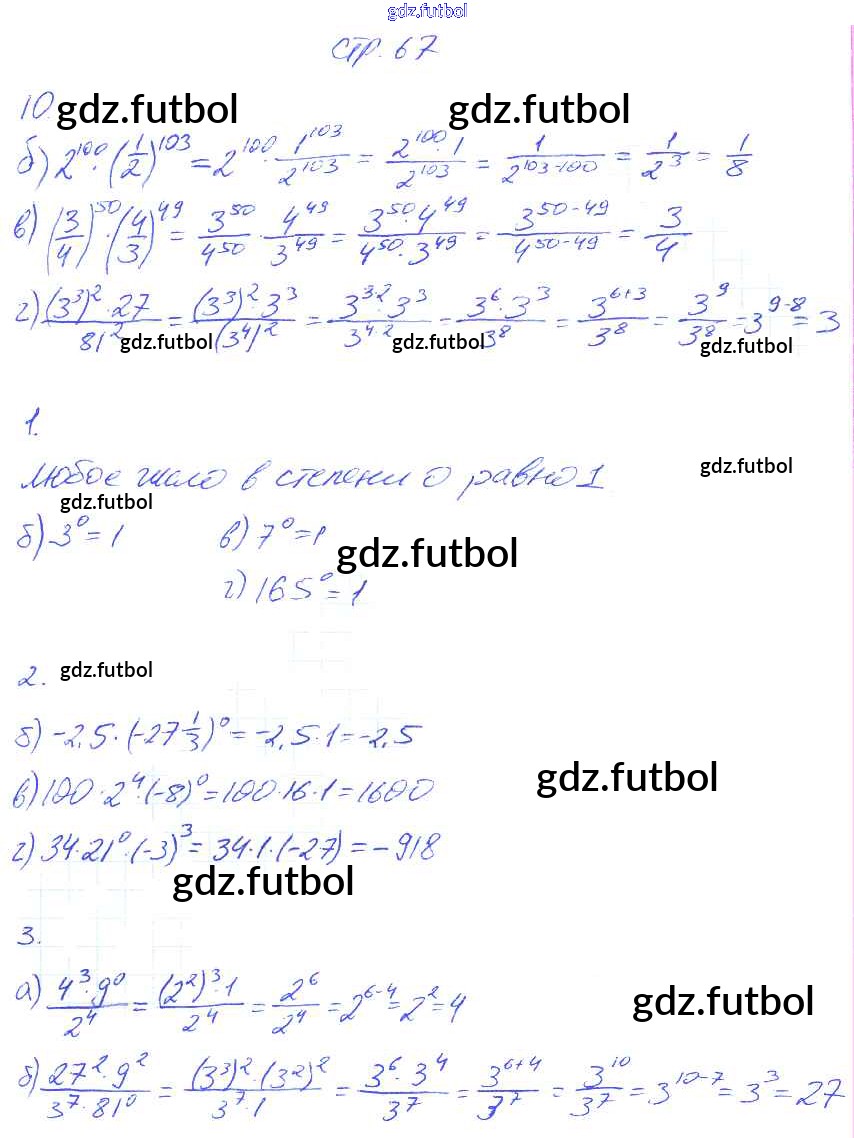 gdz.futbol
стр. 67
10. gdz.futbol gdz.futbol
б) 2^100 · (1/2)^103 = 2^100 · 1^103/2^103 = (2^100 · 1)/2^103 = 1/2^(103-100) = 1/2^3 = 1/8
в) (3/4)^50 · (4/3)^49 = 3^50/4^50 · 4^49/3^49 = (3^50 · 4^49)/(4^50 · 3^49) = 3^(50-49)/4^(50-49) = 3/4
г) ((3^3)^2 · 27)/81^2 = ((3^3)^2 · 3^3)/(3^4)^2 = (3^(3·2) · 3^3)/3^(4·2) = (3^6 · 3^3)/3^8 = 3^(6+3)/3^8 = 3^9/3^8 = 3^(9-8) = 3
gdz.futbol gdz.futbol gdz.futbol
1.
Любое число в степени 0 равно 1 gdz.futbol
gdz.futbol
б) 3^0 = 1 в) 7^0 = 1 gdz.futbol
г) 165^0 = 1
2. gdz.futbol
б) -2,5 · (-27 1/3)^0 = -2,5 · 1 = -2,5
gdz.futbol
в) 100 · 2^4 · (-8)^0 = 100 · 16 · 1 = 1600
г) 34 · 21^0 · (-3)^3 = 34 · 1 · (-27) = -918
gdz.futbol
3.
а) (4^3 · 9^0)/2^4 = ((2^2)^3 · 1)/2^4 = 2^6/2^4 = 2^(6-4) = 2^2 = 4 gdz.futbol
б) (27^2 · 9^2)/(3^7 · 81^0) = ((3^3)^2 · (3^2)^2)/(3^7 · 1) = (3^6 · 3^4)/3^7 = 3^(6+4)/3^7 = 3^10/3^7 = 3^(10-7) = 3^3 = 27